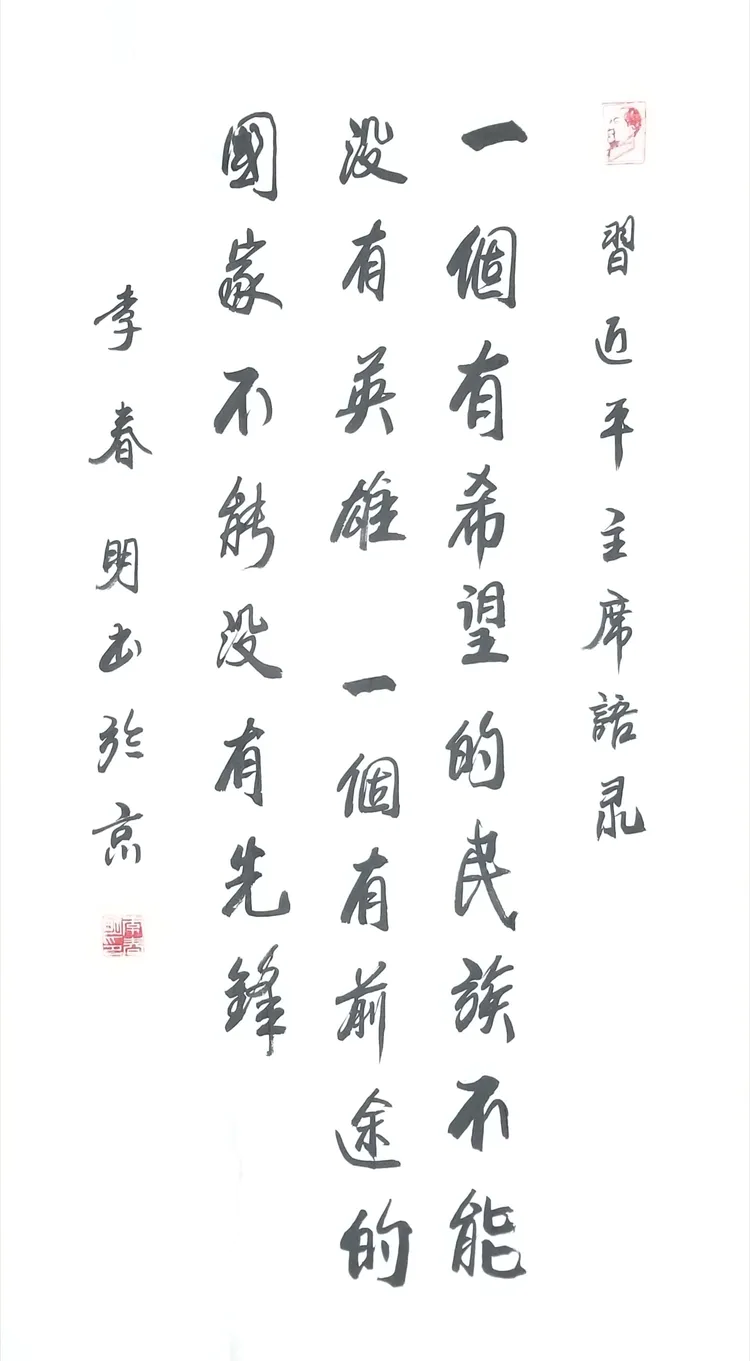 習近平主席語录
一個有希望的民族不能
没有英雄 一個有前途的
國家不能没有先鋒
李春明书於京